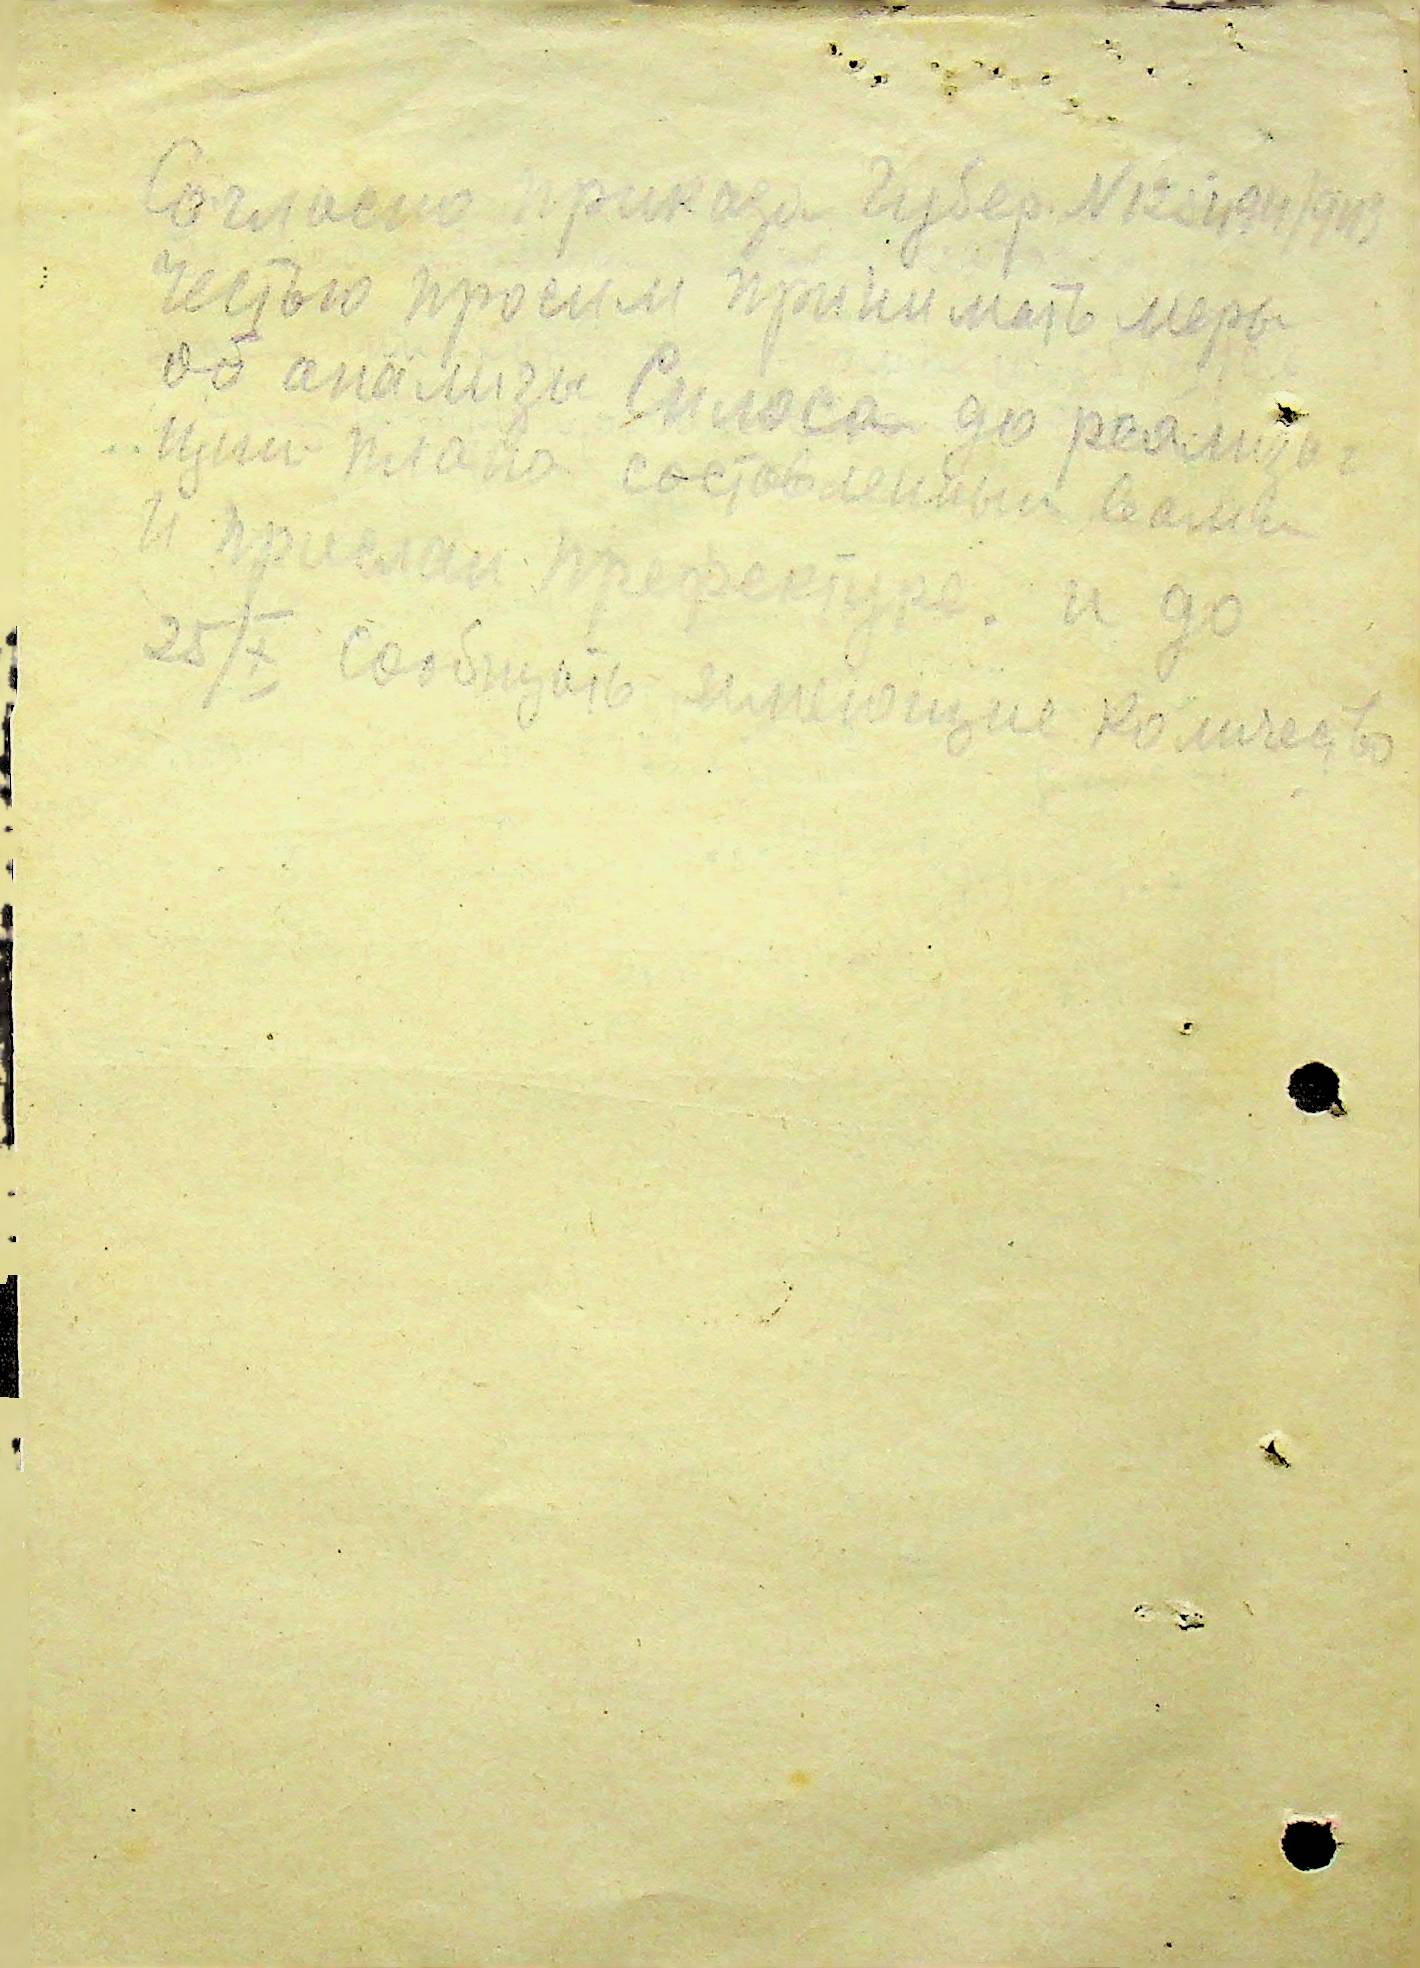 Согласно приказа Губер. N
честью просим принимать меры
об анализы Силоса до реализа-
ции плана составленным вами
и прислан префектуре. и до
25/X сообщать имеющие количество